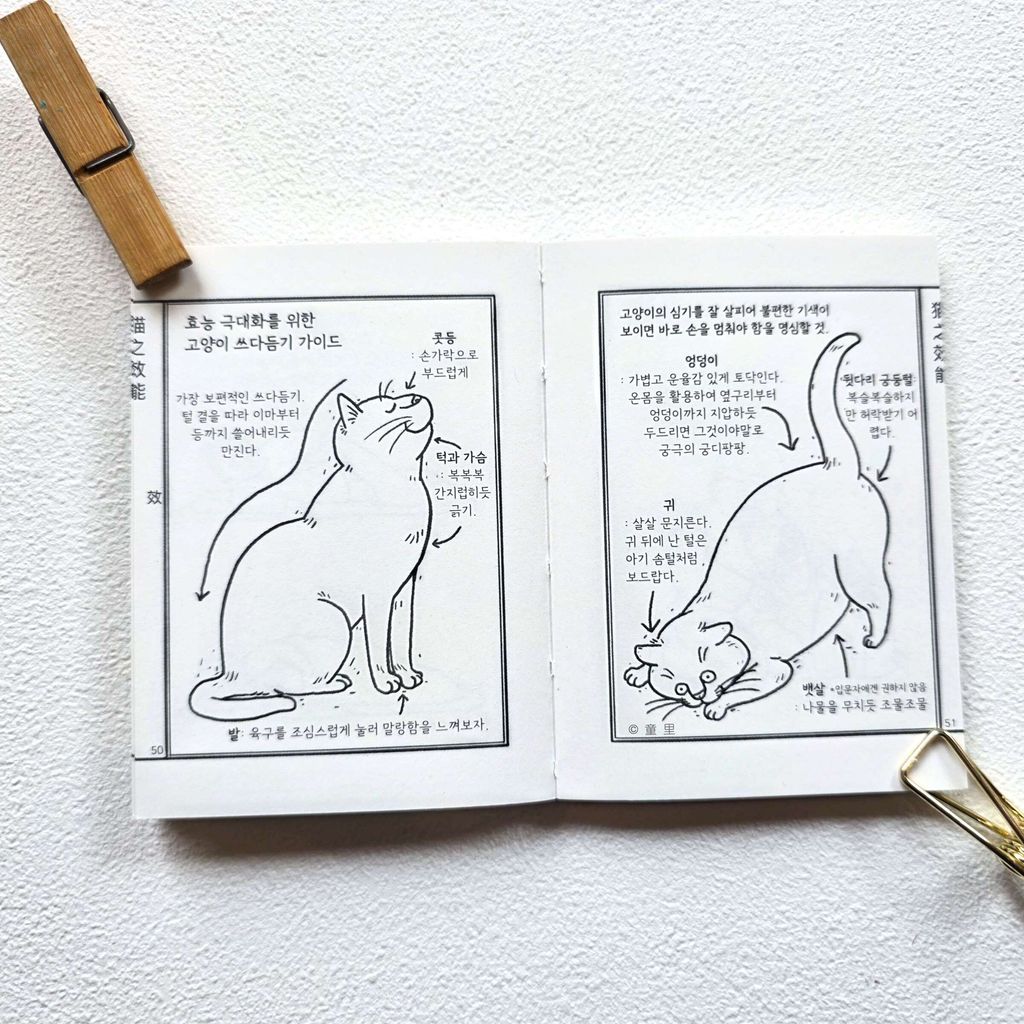 猫之效能
效
50
효능 극대화를 위한
고양이 쓰다듬기 가이드
콧등
: 손가락으로
부드럽게
가장 보편적인 쓰다듬기.
털 결을 따라 이마부터
등까지 쓸어내리듯
만진다.
턱과 가슴
: 복복복
간지럽히듯
긁기.
발: 육구를 조심스럽게 눌러 말랑함을 느껴보자.
고양이의 심기를 잘 살피어 불편한 기색이
보이면 바로 손을 멈춰야 함을 명심할 것.
엉덩이
: 가볍고 운율감 있게 토닥인다.
온몸을 활용하여 옆구리부터
엉덩이까지 지압하듯
두드리면 그것이야말로
궁극의 궁디팡팡.
뒷다리 궁둥털:
복슬복슬하지
만 허락받기 어
렵다.
귀
: 살살 문지른다.
귀 뒤에 난 털은
아기 솜털처럼
보드랍다.
뱃살 *입문자에겐 권하지 않음
: 나물을 무치듯 조물조물
© 童里
猫之效能
51